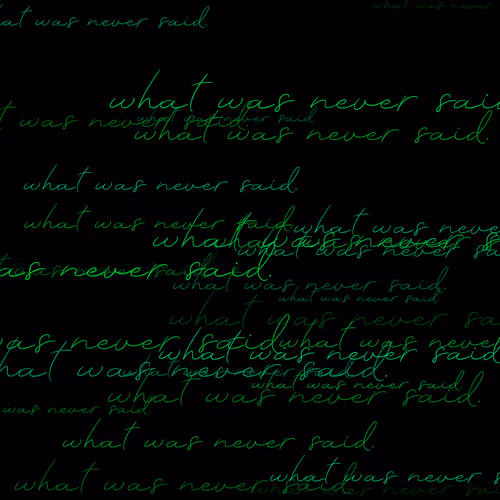 what was never said.
what was never
what was never said.
what was never said.
what was never said.
what was never said.
what was never said.
what was never said.
what was never
what was never said.
what was never said.
was never said.
what was never said.
what was never said.
what was never sa
was never said.
what was never
what was never said
what was never said.
what was never said.
what was never said.
was never said.
what was never said.
what was never s
what was never said.